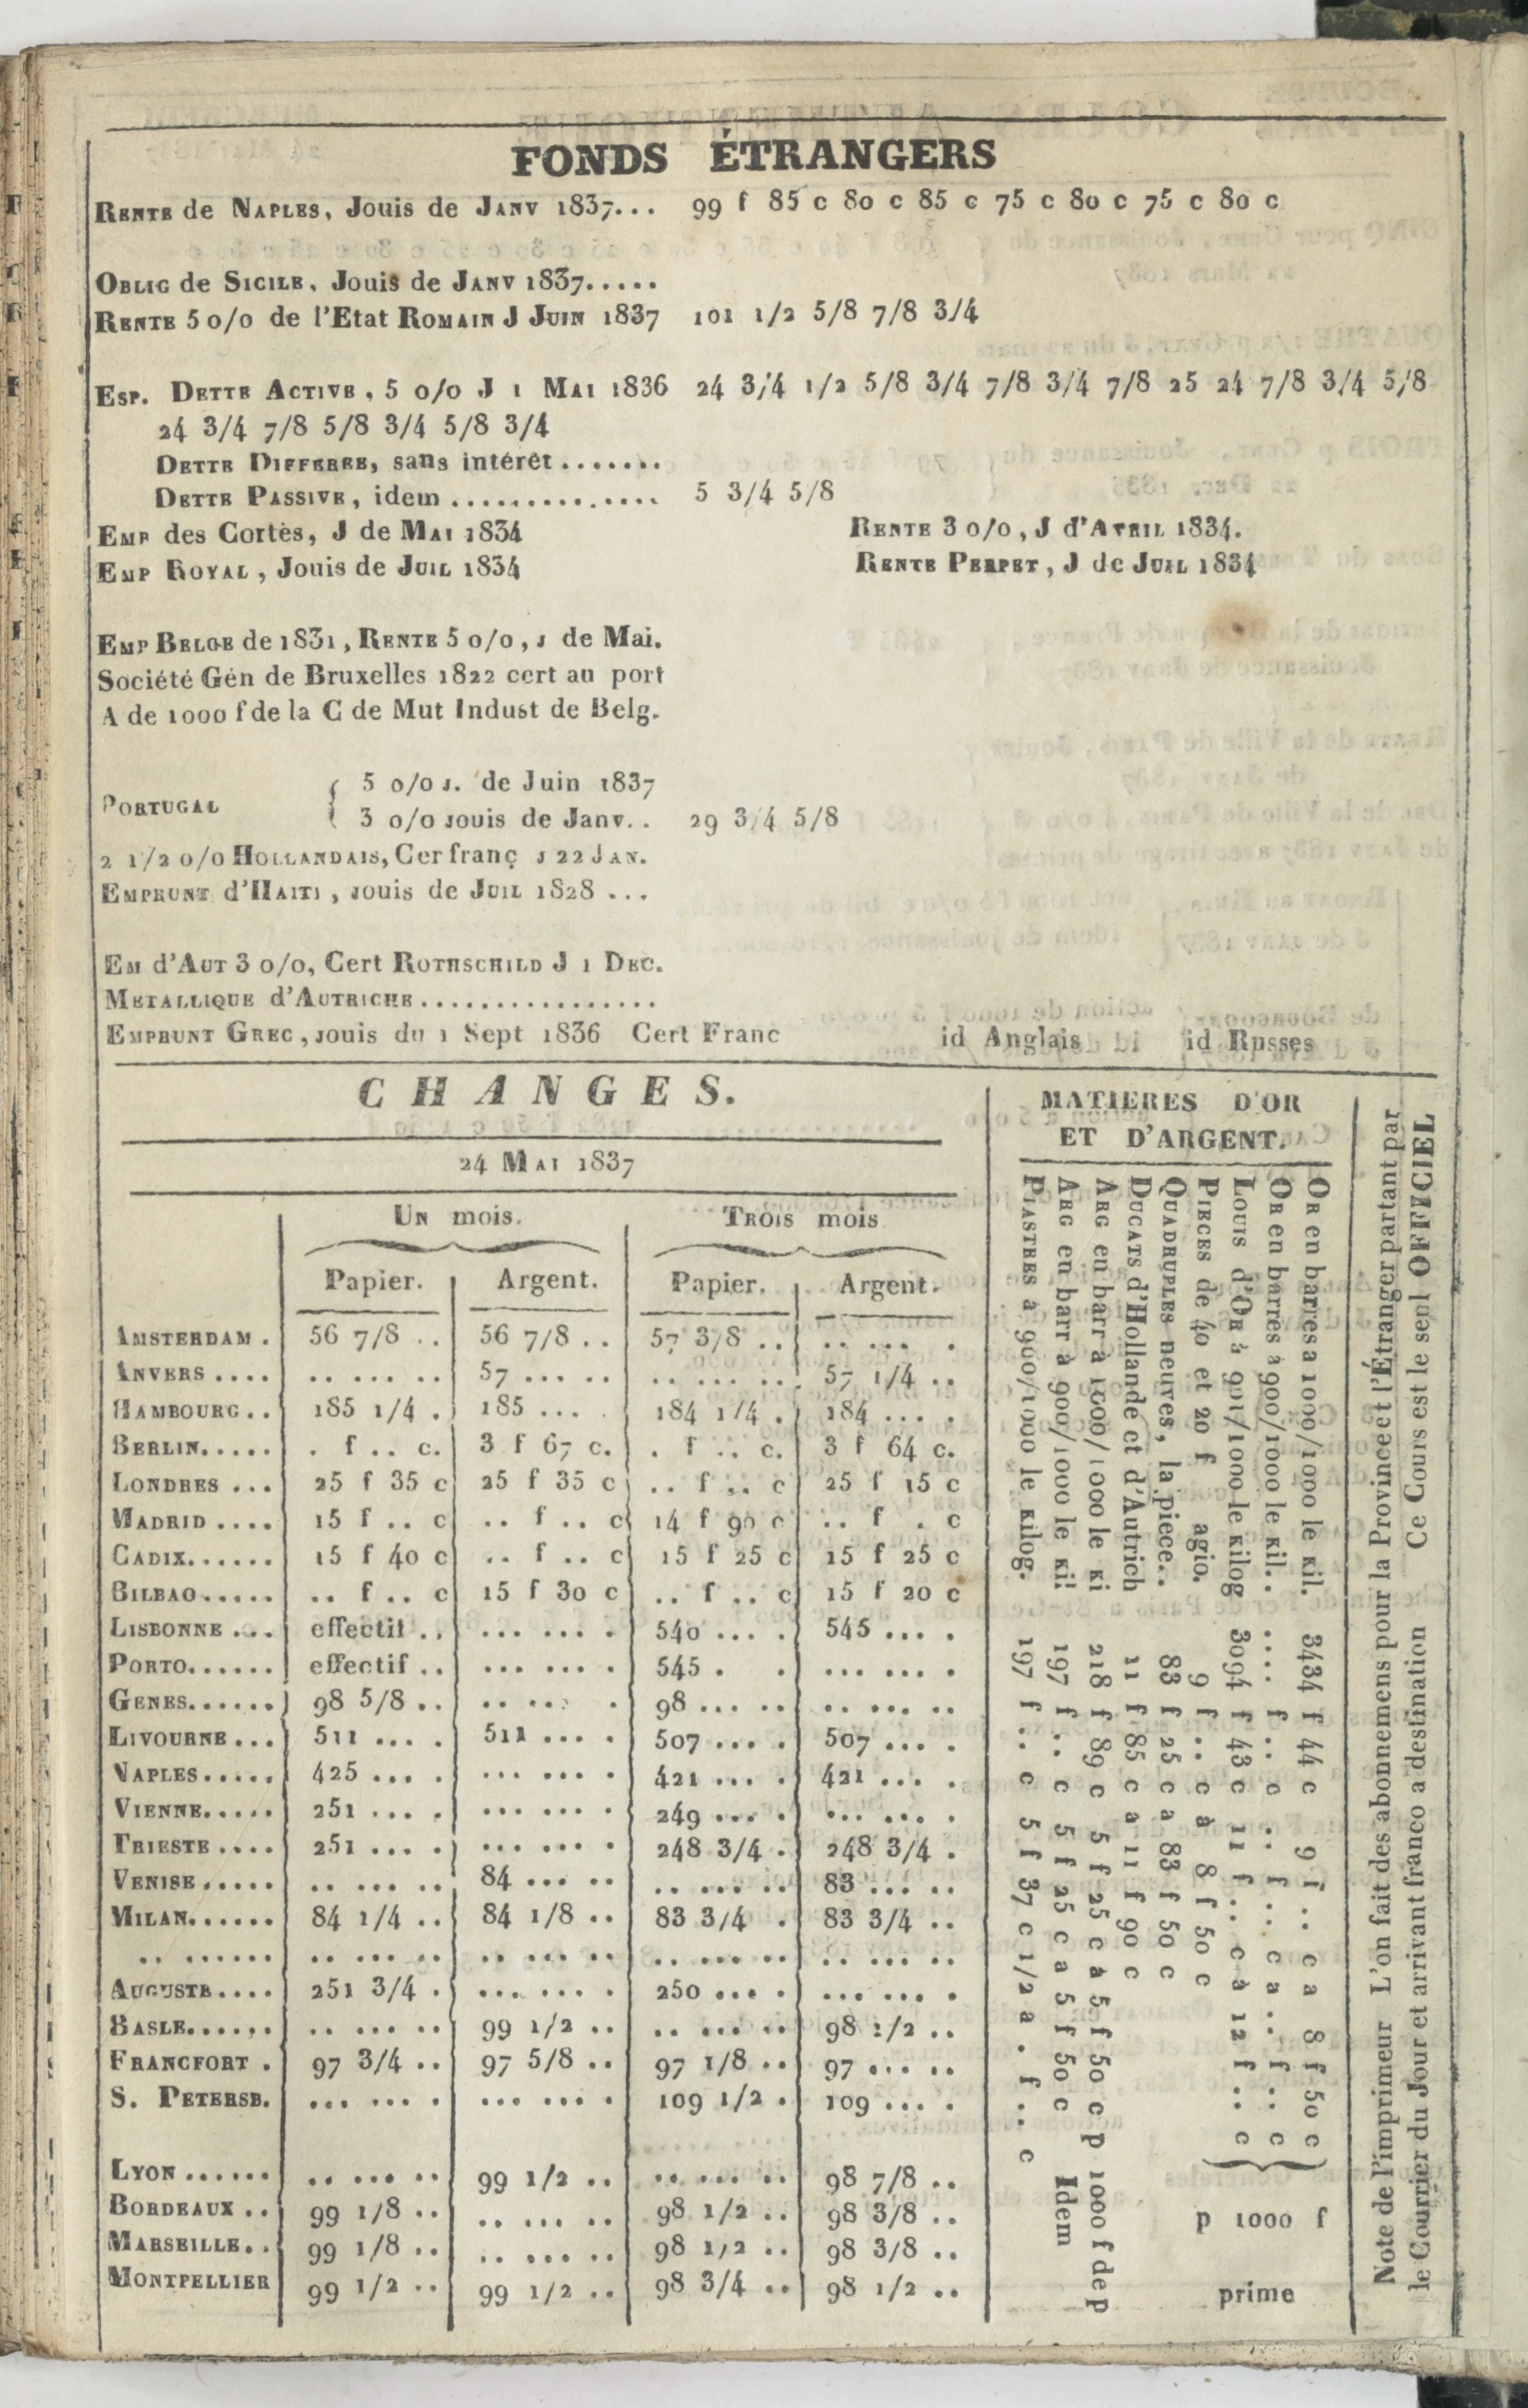 FONDS ÉTRANGERS
RENTE de NAPLES, Jouis de JANV 1837... 99 f 85 c 80 c 85 c 75 c 80 c 75 c 80 c
OBLIG de SICILE, Jouis de JANV 1837.....
RENTE 5 0/0 de l'Etat ROMAIN J JUIN 1837 101 1/2 5/8 7/8 3/4
ESP. DETTE ACTIVE, 5 0/0 J 1 MAI 1836 24 3/4 1/2 5/8 3/4 7/8 3/4 7/8 25 24 7/8 3/4 5/8
24 3/4 7/8 5/8 3/4 5/8 3/4
DETTE DIFFEREE, sans intérêt .......
DETTE PASSIVE, idem ............... 5 3/4 5/8
EMP des Cortès, J de MAI 1834 RENTE 3 0/0, J d'AVRIL 1834.
EMP ROYAL, Jouis de JUIL 1834 RENTE PERPET, J de JUIL 1834
EMP BELGE de 1831, RENTE 5 0/0, J de Mai.
Société Gén de Bruxelles 1822 cert au port
A de 1000 f de la C de Mut Indust de Belg.
PORTUGAL { 5 0/0 J. de Juin 1837
3 0/0 jouis de Janv.. 29 3/4 5/8
2 1/2 0/0 HOLLANDAIS, Cer franç J 22 JAN.
EMPRUNT d'HAITI, jouis de JUIL 1828 ...
EM d'AUT 3 0/0, Cert ROTHSCHILD J 1 DEC.
METALLIQUE d'AUTRICHE................
EMPRUNT GREC, jouis du 1 Sept 1836 Cert Franc id Anglais id Russes
CHANGES.
24 MAI 1837
UN mois. TROIS mois
Papier. Argent. Papier. Argent.
AMSTERDAM . 56 7/8 .. 56 7/8 .. 57 3/8 .. .. ... .
ANVERS .... .. ... .. 57 ... .. .. ... .. 57 1/4 ..
HAMBOURG.. 185 1/4 . 185 ... . 184 1/4 . 184 ... .
BERLIN..... . f .. c. 3 f 67 c. . f .. c. 3 f 64 c.
LONDRES ... 25 f 35 c 25 f 35 c .. f .. c 25 f 15 c
MADRID .... 15 f .. c .. f .. c 14 f 90 c .. f . c
CADIX...... 15 f 40 c .. f .. c 15 f 25 c 15 f 25 c
BILBAO..... .. f .. c 15 f 30 c .. f .. c 15 f 20 c
LISBONNE ... effectif .. ... ... . 540 ... . 545 ... .
PORTO...... effectif .. ... ... . 545 . . ... ... .
GENES...... 98 5/8 .. .. ... . 98 ... .. .. ... ..
LIVOURNE ... 511 ... . 511 ... . 507 ... . 507 ... .
NAPLES..... 425 ... . ... ... . 421 ... . 421 ... .
VIENNE..... 251 ... . ... ... . 249 ... . ... ... .
TRIESTE .... 251 ... . ... ... . 248 3/4 . 248 3/4 .
VENISE..... .. ... .. 84 ... .. .. ... .. 83 ... ..
MILAN...... 84 1/4 .. 84 1/8 .. 83 3/4 . 83 3/4 ..
.. ...... .. ... .. .. ... .. .. ... .. .. ... ..
AUGUSTE.... 251 3/4 . ... ... . 250 ... . ... ... .
BASLE...... .. ... .. 99 1/2 .. .. ... .. 98 1/2 ..
FRANCFORT . 97 3/4 .. 97 5/8 .. 97 1/8 .. 97 ... ..
S. PETERSB. ... ... . ... ... . 109 1/2 . 109 ... .
LYON ...... .. ... .. 99 1/2 .. .. ... .. 98 7/8 ..
BORDEAUX .. 99 1/8 .. .. ... .. 98 1/2 .. 98 3/8 ..
MARSEILLE.. 99 1/8 .. .. ... .. 98 1/2 .. 98 3/8 ..
MONTPELLIER 99 1/2 .. 99 1/2 .. 98 3/4 .. 98 1/2 ..
MATIERES D'OR
ET D'ARGENT.
OR en barres a 1000/1000 le KIL. 3434 f 44 c 9 f .. c a 8 f 50 c
OR en barres à 900/1000 le KIL.. .... f .. c .. f .. c a .. f .. c
LOUIS d'OR à 901/1000 le KILOG 3094 f 43 c 11 f .. c à 12 f .. c
p 1000 f
prime
PIECES de 40 et 20 f agio. 9 f .. c à 8 f 50 c
QUADRUPLES neuves, la piece.. 83 f 25 c a 83 f 50 c
DUCATS d'Hollande et d'Autrich 11 f 85 c a 11 f 90 c
ARG en barr à 1000/1000 le KI 218 f 89 c 5 f 25 c à 5 f 50 c p 1000 f de p
ARG en barr à 900/1000 le KIL 197 f .. c 5 f 25 c a 5 f 50 c Idem
PIASTRES à 900/1000 le KILOG. 197 f .. c 5 f 37 c 1/2 a . f .. c
Note de l'imprimeur L'on fait des abonnemens pour la Province et l'Étranger partant par
le Courrier du Jour et arrivant franco a destination Ce Cours est le seul OFFICIEL